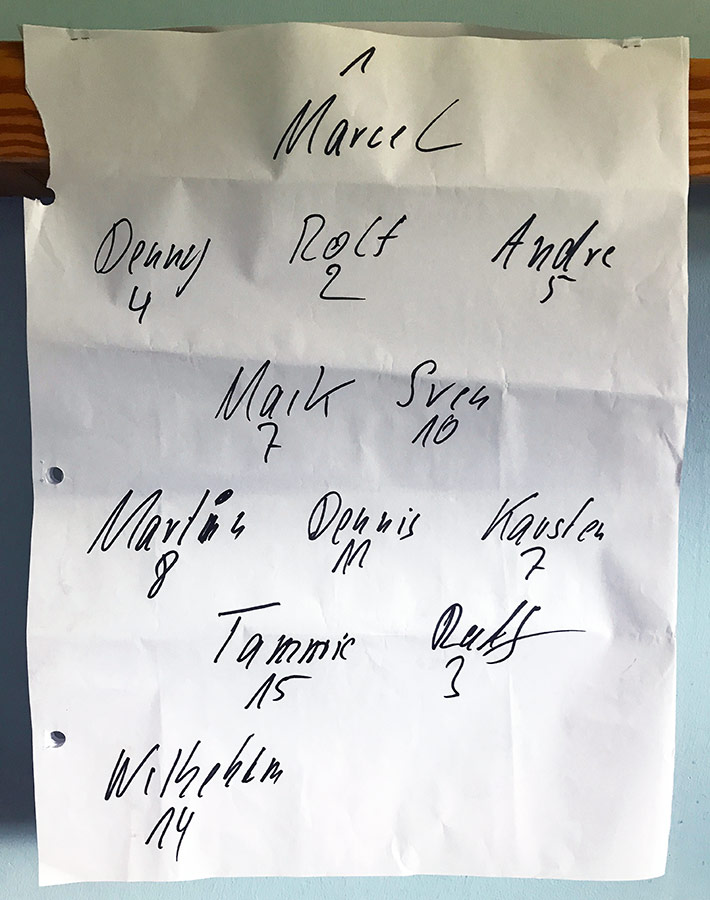 1
Marcel
Denny Rolf Andre
4 2 5
Maik Sven
7 10
Martin Dennis Karsten
8 11 7
Tammie
15 3
Wilhehlm
14